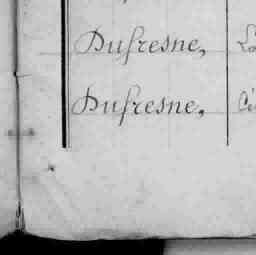 Dufresne,
Dufresne,